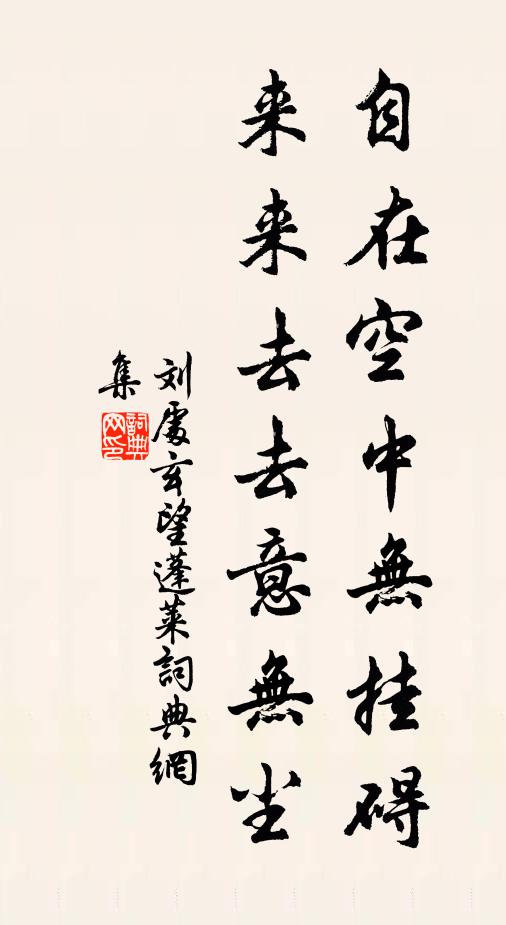 自在空中無挂碍
来来去去意無尘
刘處玄望蓬莱詞典網
集
詞典网印